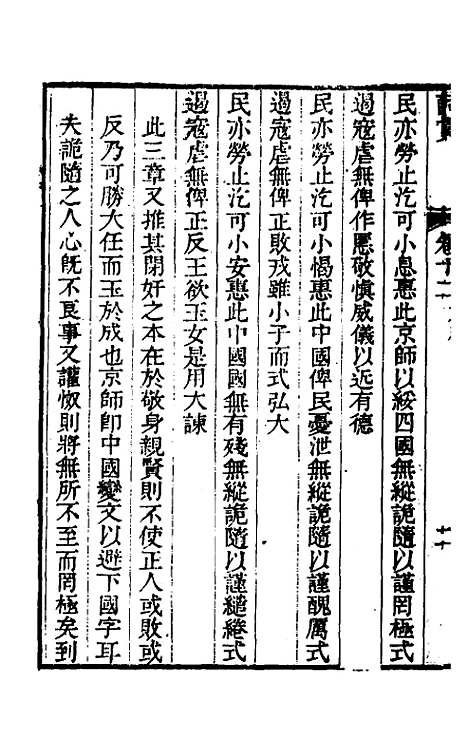 民亦勞止汔可小息惠此京師以綏四國無縱詭隨以謹罔極式
遏寇虐無俾作慝敬慎威儀以近有德
民亦勞止汔可小愒惠此中國俾民憂泄無縱詭隨以謹醜厲式
遏寇虐無俾正敗戎雖小子而式弘大
民亦勞止汔可小安惠此中國國無有殘無縱詭隨以謹繾綣式
遏寇虐無俾正反王欲玉女是用大諫
此三章又推其閉好之本在於敬身親賢則不使正人或敗或
反乃可勝大任而玉於成也京師即中國變文以避下國字耳
夫詭隨之人心旣不良事又讙怓則將無所不至而罔極矣到